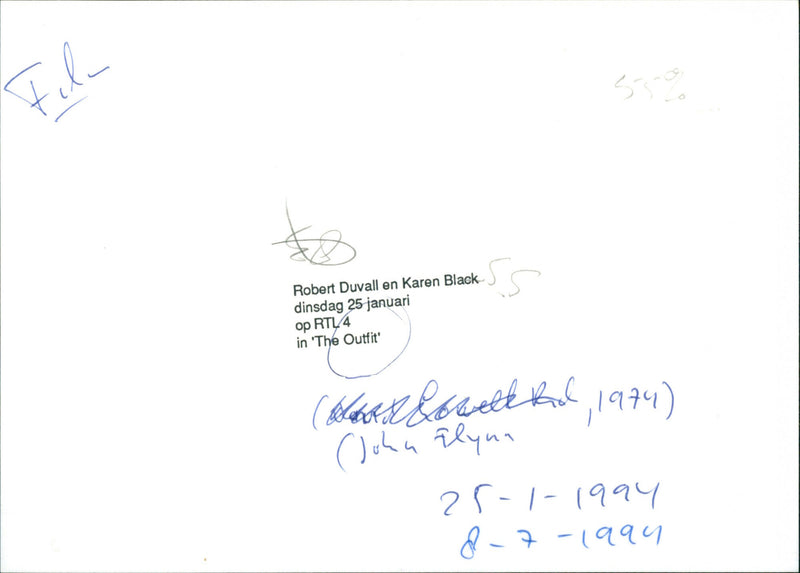 Film
55%
Robert Duvall en Karen Black
55
dinsdag 25 januari
op RTL 4
in 'The Outfit'
, 1974)
(John Flynn
25-1-1994
8-7-1994